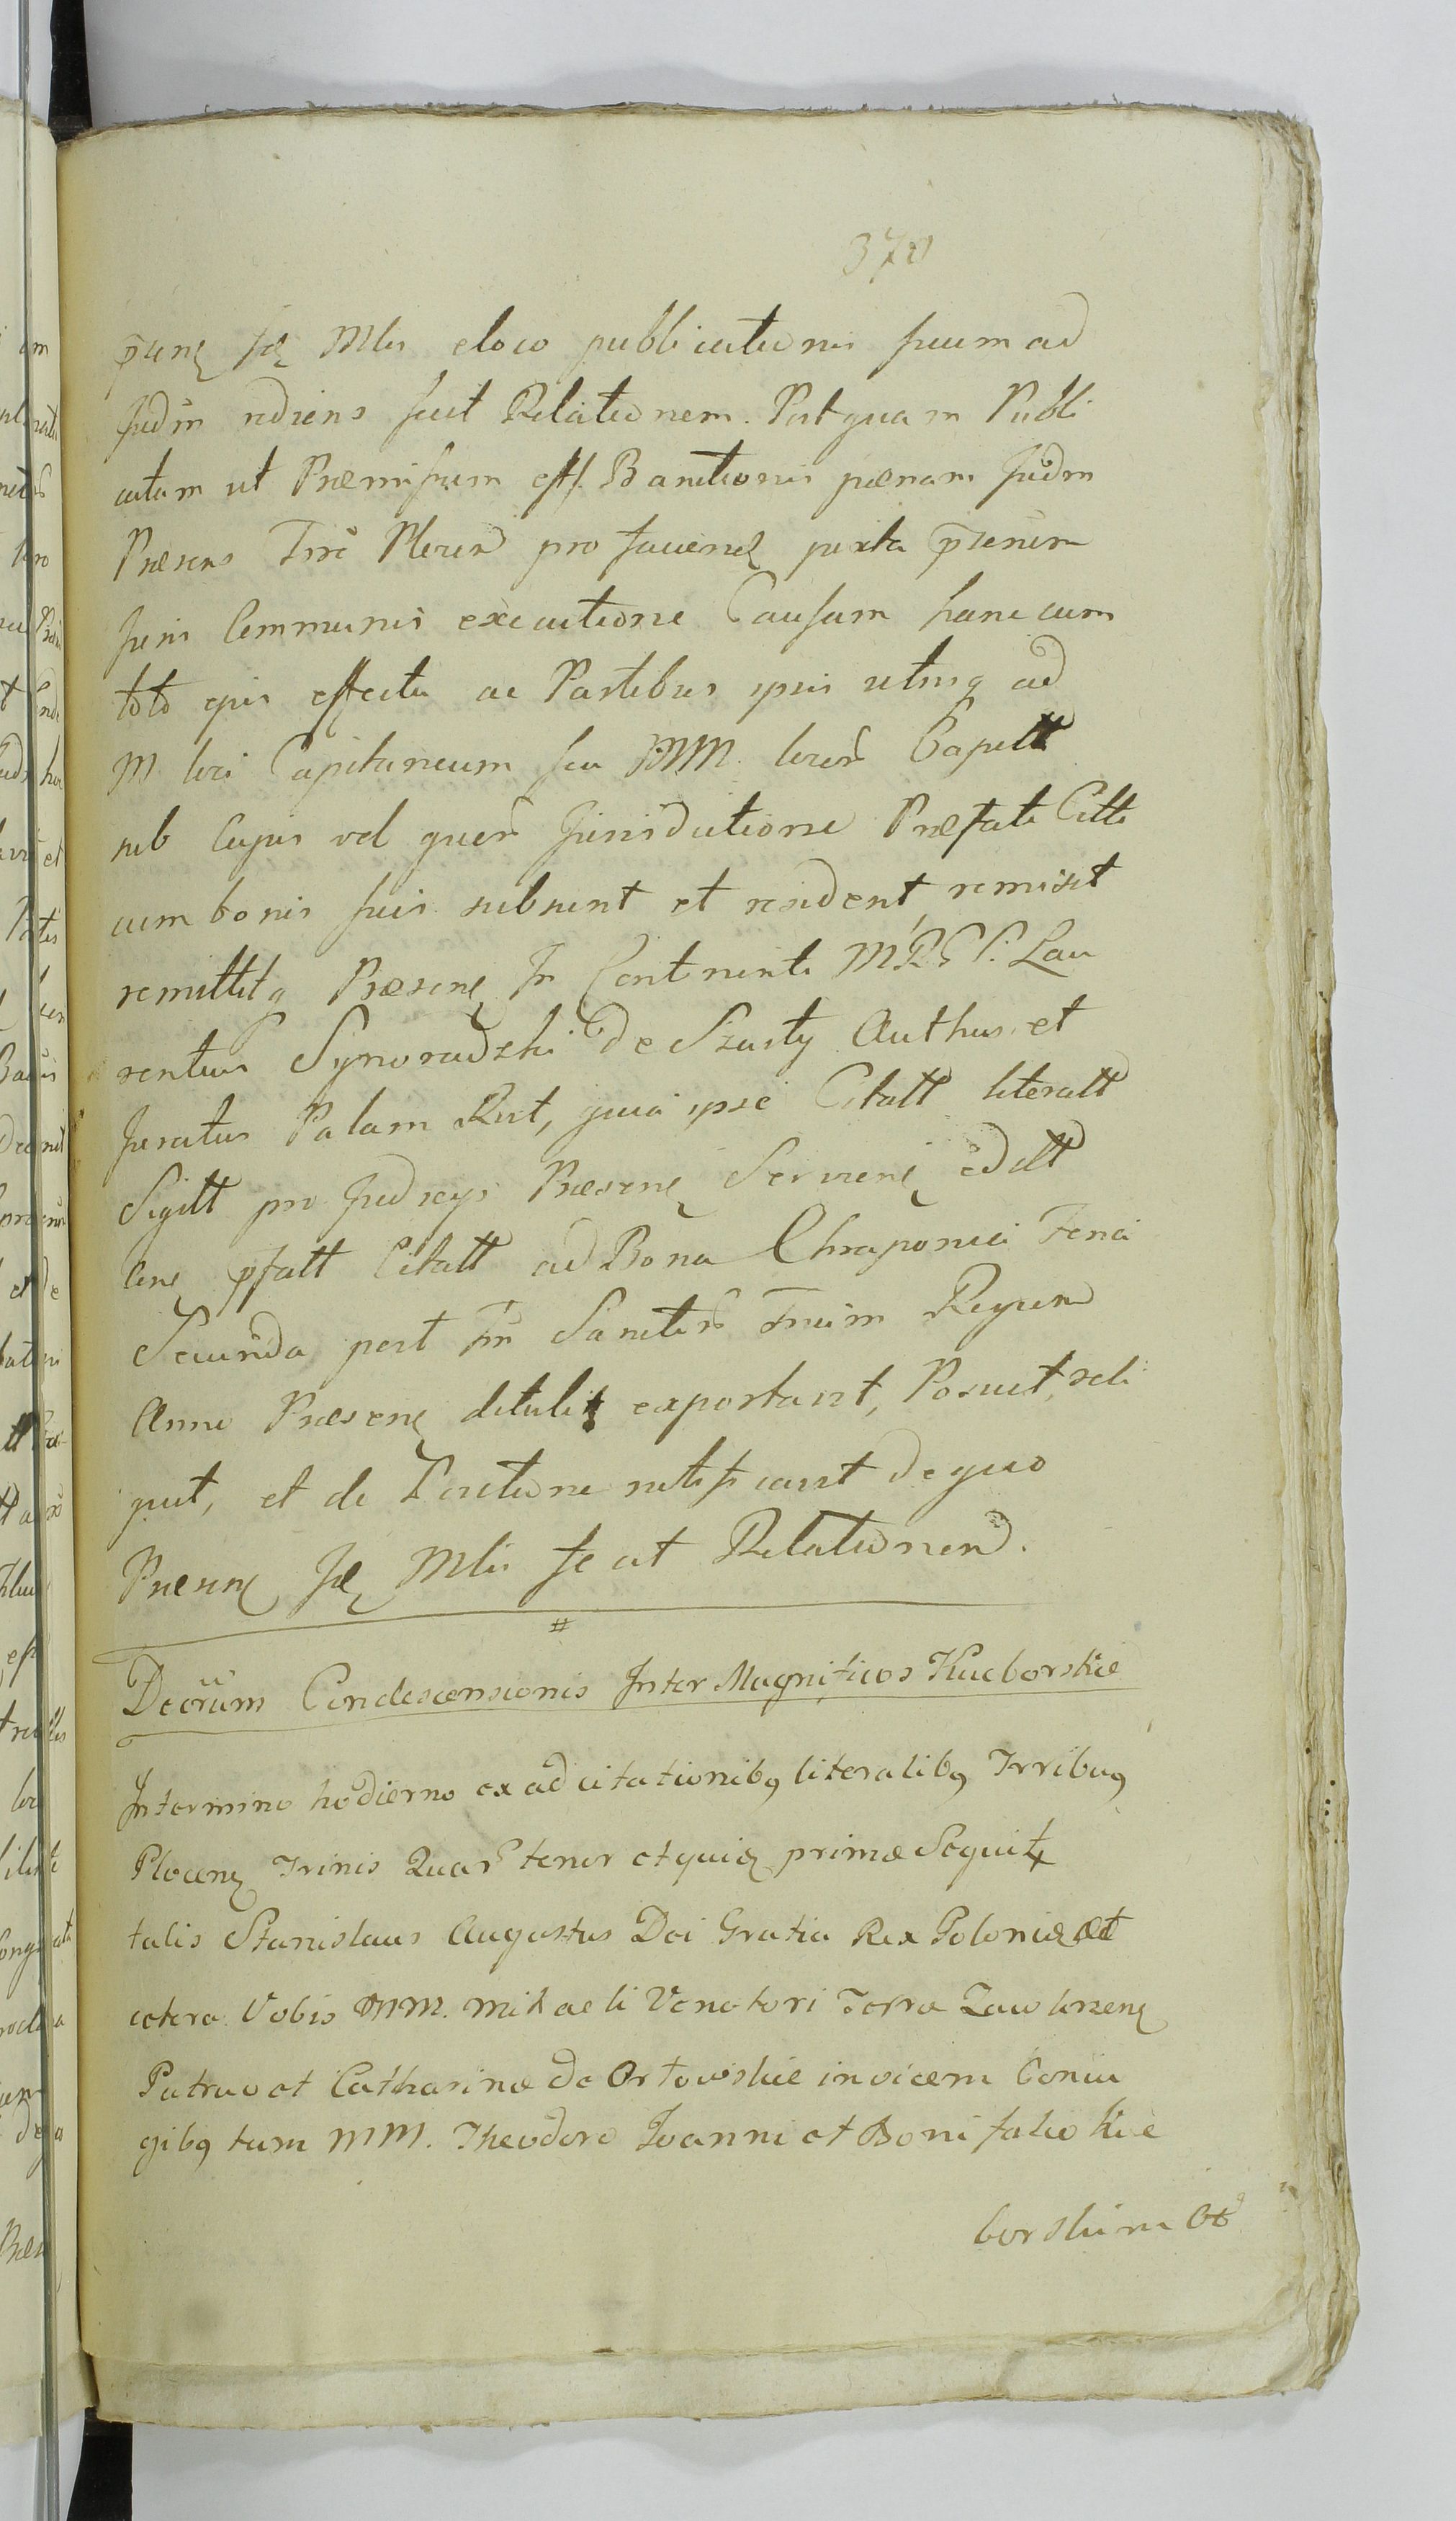 370
p̄senę Jlę Mlis eloco publicationis suum ad
Judm rediens fecit Relationem. Postquam Publi
catam ut Præmissum est Banitionis pænam Judm
Præsens Trrē Plocen pro facienď juxta p̄sentem
Juris Communis executione Causam hanc cum
toto ejus effectu ac Partibus ipsis utrisq ad
M. loci Capitaneum seu MM. locor̃ Capitt
sub Cujus vel quor̃ Jurisdictione Præfati Citti
cum bonis suis subsunt et resident, remisit
remittitq Præsenę In Continenti M.R.S.P. Lau
rentius Synoradzki de Szusty Authus. et
Juratus Palam Rnt, quia ipse Citatt literatt
Sigitt pro Judicys Præsenę Servienę edtt
lenę pfatt Citatt ad Bona Chraponia Feria
Secunda post Fm Sanctor̃ Trium Regum
Anni Præsenę detulit exportavit, Posuit, reli
quit, et de Positione notificavit de quo
Præsenę Jlę Mlis fecit Relationem.
#
Decrūm Condescensionis Inter Magnificos Kucborskie
In termino hodierno ex ad citationibq literalibq Trribuq
Plocenę Trinis Quar̃ tenor et quiď primæ Sequitr
talis Stanislaus Augustus Dei Gratia Rex Poloniæ et
cetera. Vobis MM. Michaeli Venatori Terræ Zawkrzenę
Patruo et Catharinæ de Orłowskie invicem Coniu
gibq tum MM. Theodoro Joanni et Bonifatio Kuc
borskim &